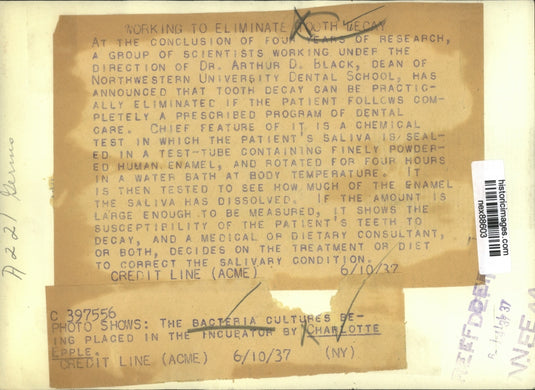 WORKING TO ELIMINATE TOOTH DECAY
AT THE CONCLUSION OF FOUR YEARS OF RESEARCH,
A GROUP OF SCIENTISTS WORKING UNDER THE
DIRECTION OF DR. ARTHUR D. BLACK, DEAN OF
NORTHWESTERN UNIVERSITY DENTAL SCHOOL, HAS
ANNOUNCED THAT TOOTH DECAY CAN BE PRACTIC-
ALLY ELIMINATED IF THE PATIENT FOLLOWS COM-
PLETELY A PRESCRIBED PROGRAM OF DENTAL
CARE. CHIEF FEATURE OF IT IS A CHEMICAL
TEST IN WHICH THE PATIENT'S SALIVA IS SEAL-
ED IN A TEST-TUBE CONTAINING FINELY POWDER-
ED HUMAN ENAMEL, AND ROTATED FOR FOUR HOURS
IN A WATER BATH AT BODY TEMPERATURE. IT
IS THEN TESTED TO SEE HOW MUCH OF THE ENAMEL
THE SALIVA HAS DISSOLVED. IF THE AMOUNT IS
LARGE ENOUGH TO BE MEASURED, IT SHOWS THE
SUSCEPTIBILITY OF THE PATIENT'S TEETH TO
DECAY, AND A MEDICAL OR DIETARY CONSULTANT,
OR BOTH, DECIDES ON THE TREATMENT OR DIET
TO CORRECT THE SALIVARY CONDITION.
CREDIT LINE (ACME) 6/10/37
C 397556
PHOTO SHOWS: THE BACTERIA CULTURES BE-
ING PLACED IN THE INCUBATOR BY CHARLOTTE
EPPLE.
CREDIT LINE (ACME) 6/10/37 (NY)
A221 Germs
historicimages.com
nex88603